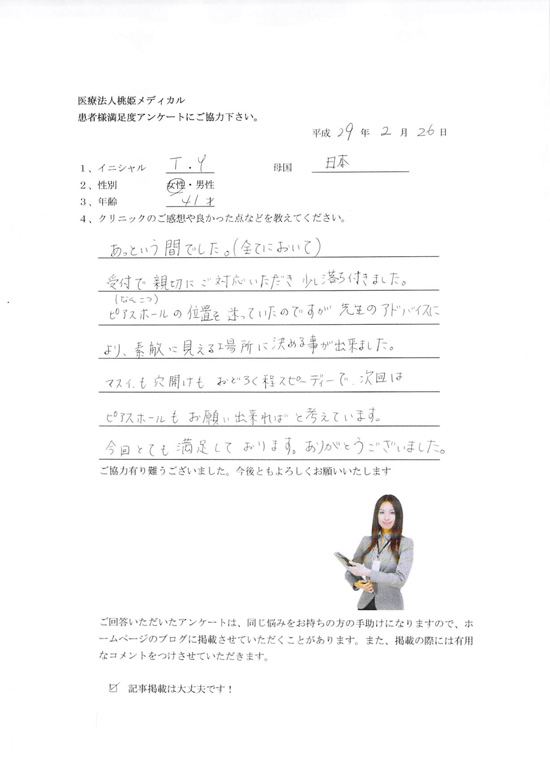 医療法人桃姫メディカル
患者様満足度アンケートにご協力下さい。
平成 29 年 2 月 26 日
1、イニシャル T.Y 母国 日本
2、性別 女性・男性
3、年齢 41才
4、クリニックのご感想や良かった点などを教えてください。
あっという間でした。(全てにおいて)
受付で親切にご対応いただき少し落ち付きました。
(なんこつ)
ピアスホールの位置を迷っていたのですが先生のアドバイスに
より、素敵に見える場所に決める事が出来ました。
マスイも穴開けもおどろく程スピーディーで、次回は
ピアスホールもお願い出来ればと考えています。
今回とても満足しております。ありがとうございました。
ご協力有り難うございました。今後ともよろしくお願いいたします
ご回答いただいたアンケートは、同じ悩みをお持ちの方の手助けになりますので、ホ
ームページのブログに掲載させていただくことがあります。また、掲載の際には有用
なコメントをつけさせていただきます。
☑ 記事掲載は大丈夫です！